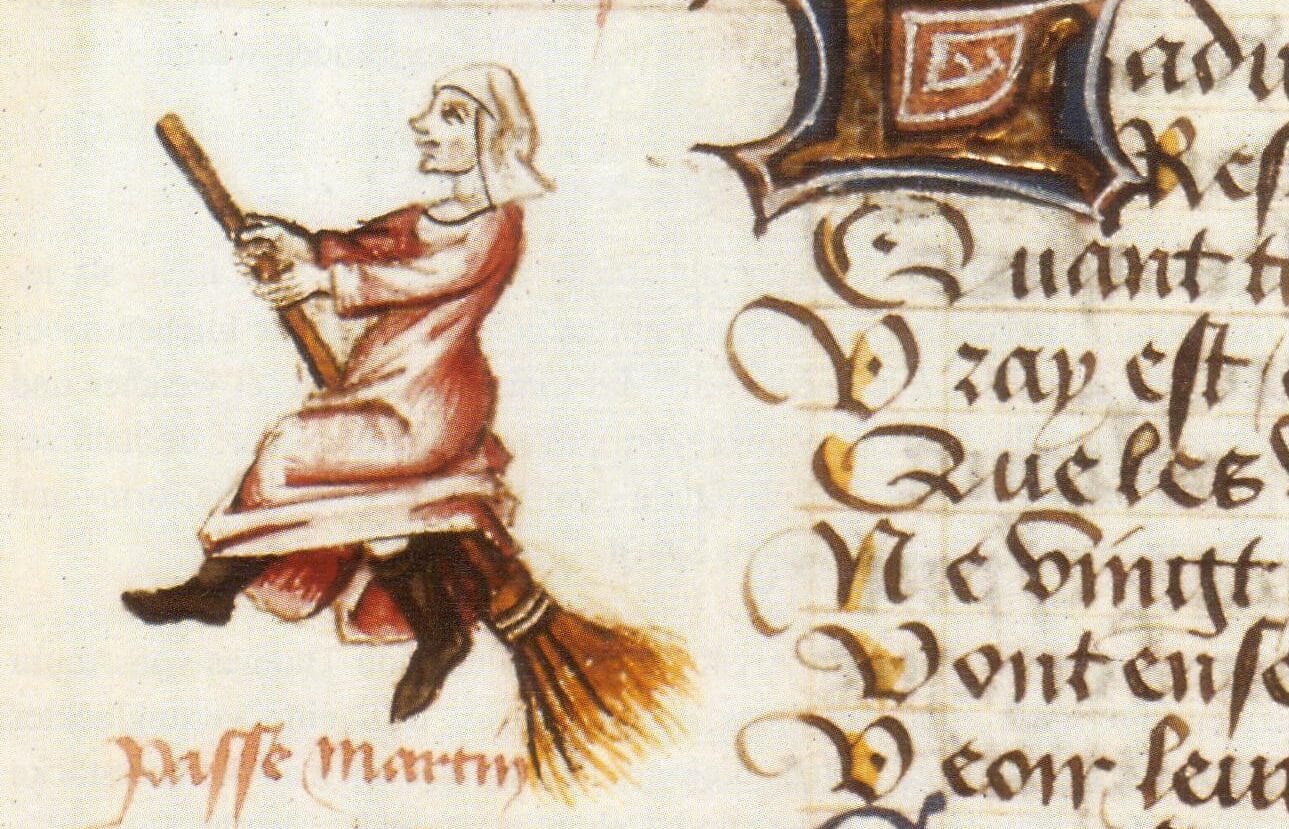 passe martin
adu
Res
Quant t
Vray est
Que les v
Ne vingt
Vont ense
Veoir leur